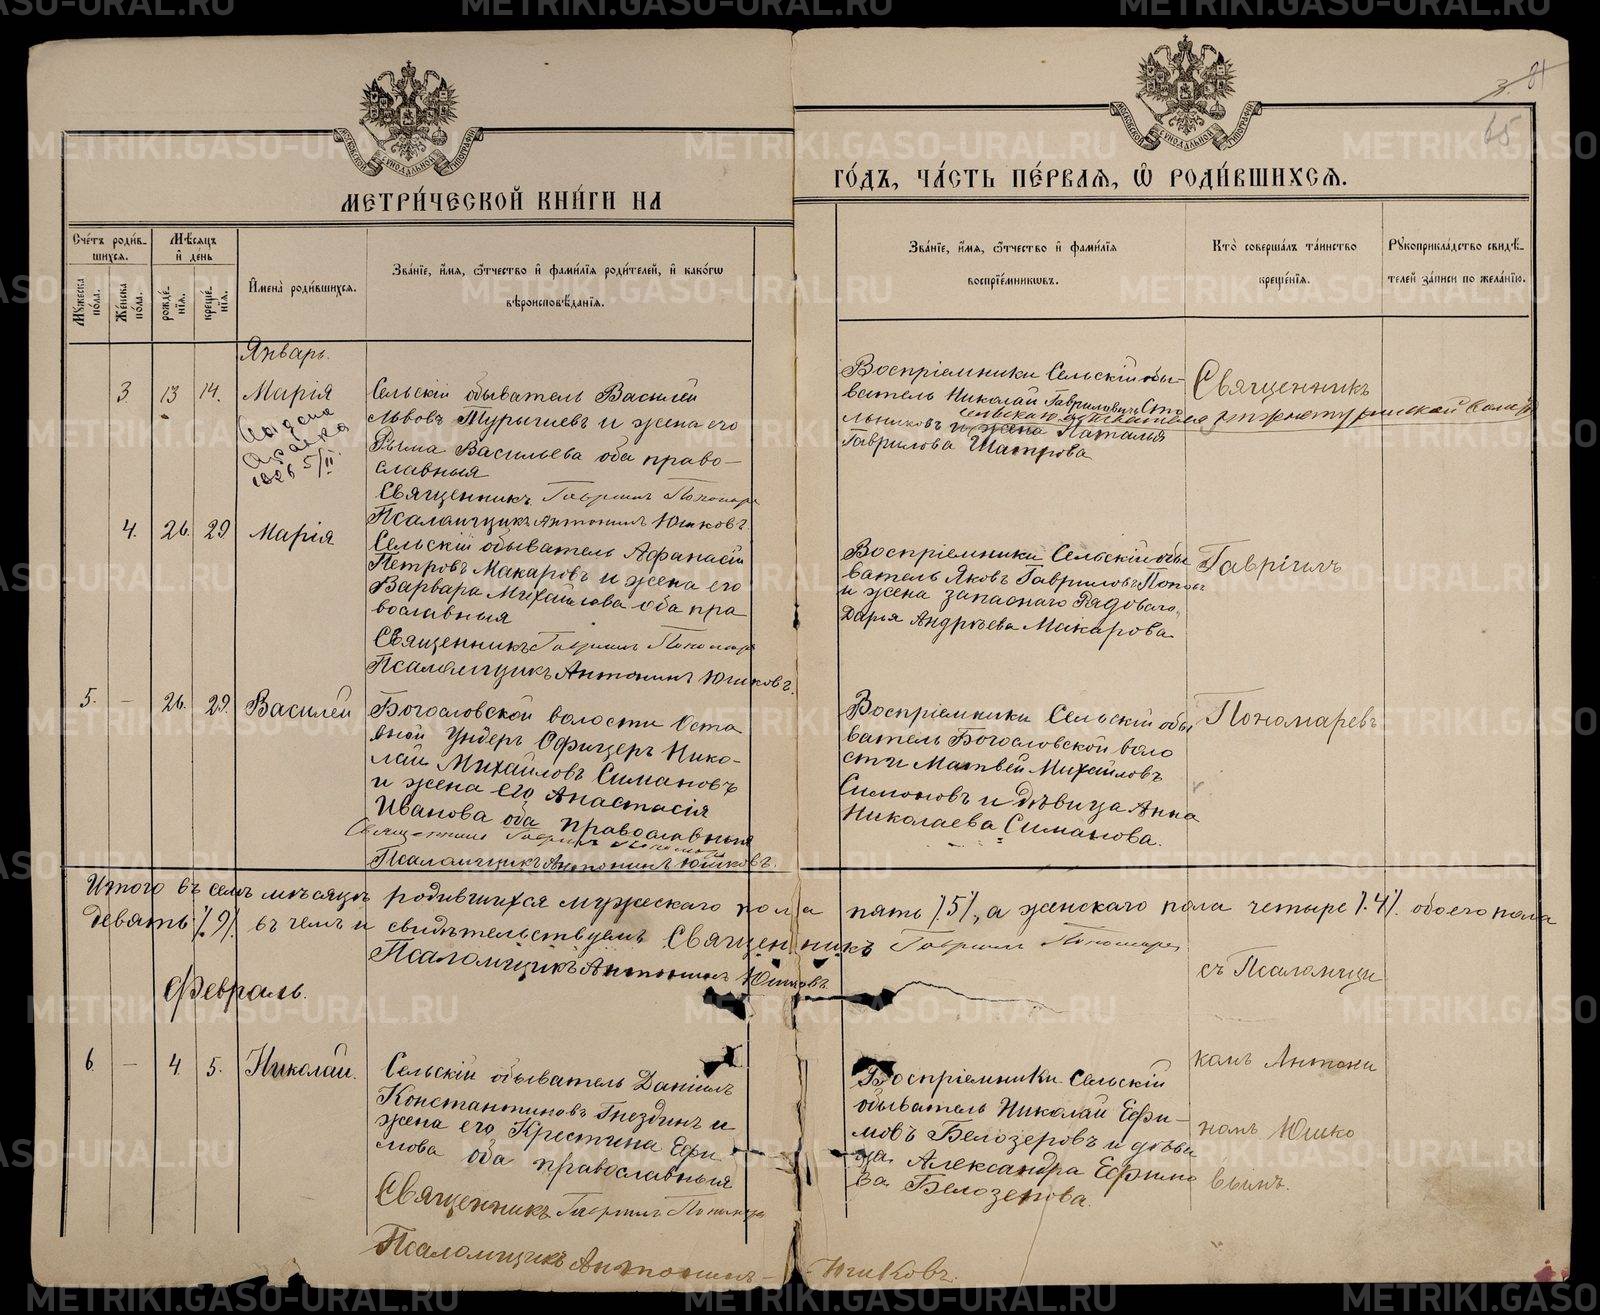 МЕТРИ́ЧЕСКОЙ КНИ́ГИ НА
ГО́ДЪ, ЧА́СТЬ ПЕ́РВАЯ, Ѡ РОДИ́ВШИХСЯ.
65
Сче́тъ роди́в-
шихся.
Му́жеска по́ла.
Же́нска по́ла.
Мѣ́сяцъ и день
рожде́нія.
креще́нія.
И́мена роди́вшихся.
Зва́ніе, и́мя, ѻ́тчество и фами́лія роди́телей, и како́гѡ
вѣроисповѣ́данія.
Зва́ніе, и́мя, ѻ́тчество и фами́лія
воспріе́мниковъ.
Кто̀ соверша́лъ та́инство
креще́нія.
Рꙋкоприкла́дство свидѣ́-
телей за́писи по жела́нію.
Январь.
3. 13 14. Марія
Сельскій обыватель Василій
Львовъ Турышевъ и жена его
Васильева оба право-
славныя
Священникъ Гавриилъ Пономаре
Псаломщикъ Антонинъ Юшковъ.
Воспріемники Сельскій обы-
ватель Николай Гавриловъ Сто
льниковъ и жена Наталья
Гаврилова Шатрова
Священникъ
4. 26. 29 Марія
Сельскій обыватель Афанасій
Петровъ Макаровъ и жена его
Варвара Михайлова оба пра
вославныя
Священникъ Гавриилъ Пономаре
Псаломщикъ Антонинъ Юшковъ.
Воспріемники Сельскій обы
ватель Яковъ Гавриловъ Поповъ
и жена запаснаго Рядоваго
Дарья Андрѣева Макарова
Гавріилъ
5. – 26. 29. Василій
Богословской волости Отста
вной Ундеръ Офицеръ Нико-
лай Михайловъ Симановъ
и жена его Анастасія
Иванова оба православныя
Священникъ Гавриилъ Пономаре
Псаломщикъ Антонинъ Юшковъ.
Воспріемники Сельскій обы
ватель Богословской воло
сти Матвей Михайловъ
Симоновъ и дѣвица Анна
Николаева Симанова.
Пономаревъ
Итого въ семъ мѣсяцѣ родившихся мужескаго пола пять /.5/., а женскаго пола четыре /.4/. обоего пола
девять /.9/. въ чемъ и свидѣтельствуемъ Священникъ Гавриилъ Пономаре
Псаломщикъ Антонинъ Юшковъ.
съ Псаломщи
Февраль.
6. – 4. 5. Николай.
Сельскій обыватель Даніилъ
Константиновъ Гнездинъ и
жена его Крестина Ефи
мова оба православныя
Священникъ Гавриилъ Пономаре
Псаломщикъ Антонинъ Юшковъ.
Воспріемники Сельскій
обыватель Николай Ефи-
мовъ Белозеровъ и дѣви
ца Александра Ефимо
ва Белозерова.
комъ Антони
номъ Юшко
вымъ.
METRIKI.GASO-URAL.RU